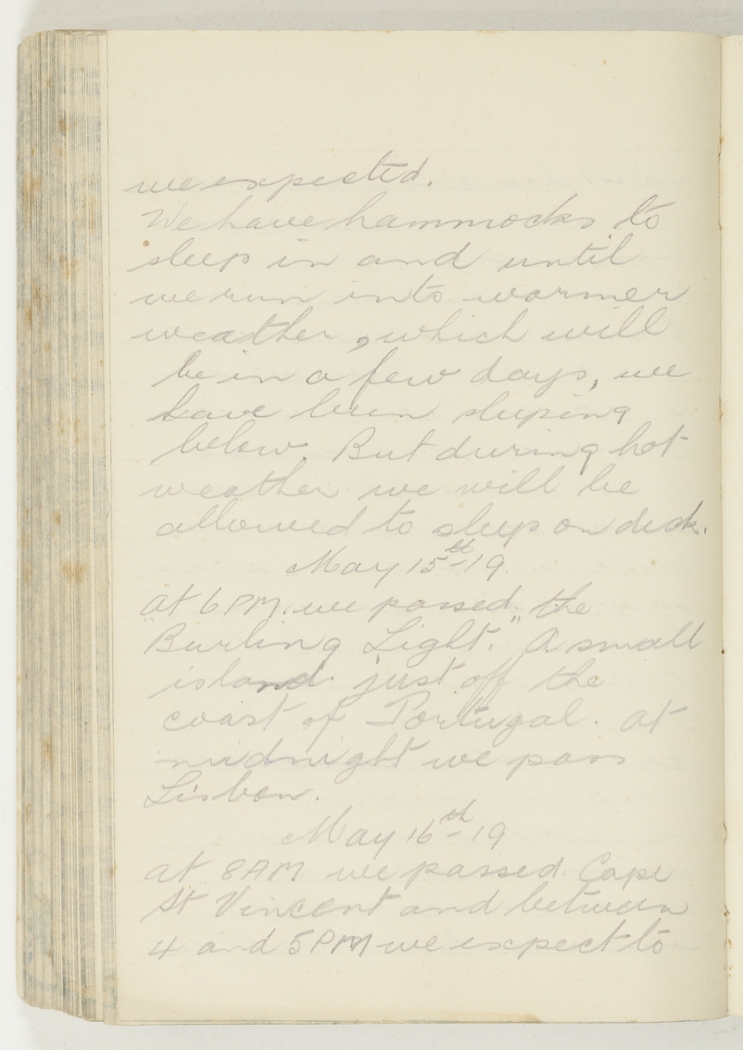 we expected.
We have hammocks to
sleep in and until
we run into warmer
weather, which will
be in a few days, we
have been sleeping
below. But during hot
weather we will be
allowed to sleep on deck.
May 15th-19
at 6 PM. we passed the
"Burling Light." A small
island just off the
coast of Portugal. at
midnight we pass
Lisbon.
May 16th-19
at 8AM we passed Cape
St Vincent and between
4 and 5 PM we expect to